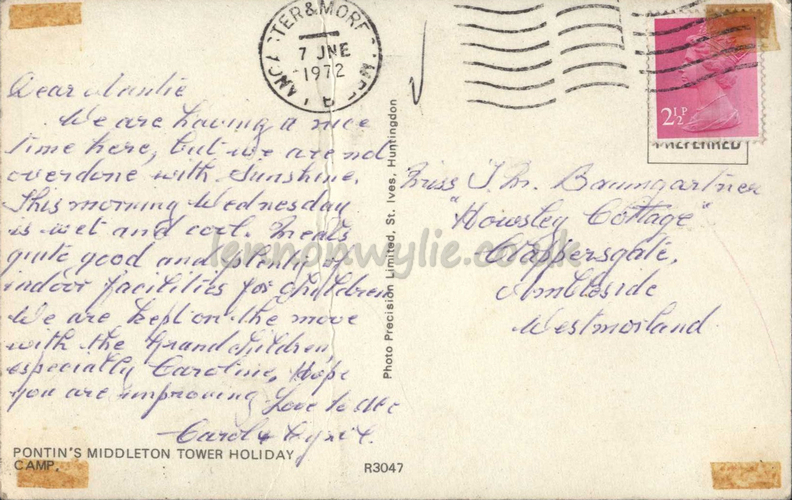 LANCASTER & MORECAMBE
7 JNE
1972
2½P
PREFERRED
Dear Auntie
We are having a nice
time here, but we are not
overdone with Sunshine.
This morning Wednesday
is wet and cool. Meals
quite good and plenty of
indoor facilities for children
We are kept on the move
with the Grandchildren,
especially Caroline, Hope
you are improving Love to All
Carol & Cyril.
PONTIN'S MIDDLETON TOWER HOLIDAY
CAMP.
R3047
Photo Precision Limited, St. Ives, Huntingdon
Miss J. M. Baumgartner
"Howsley Cottage"
Ambleside
Westmorland
lennonwylie.co.uk